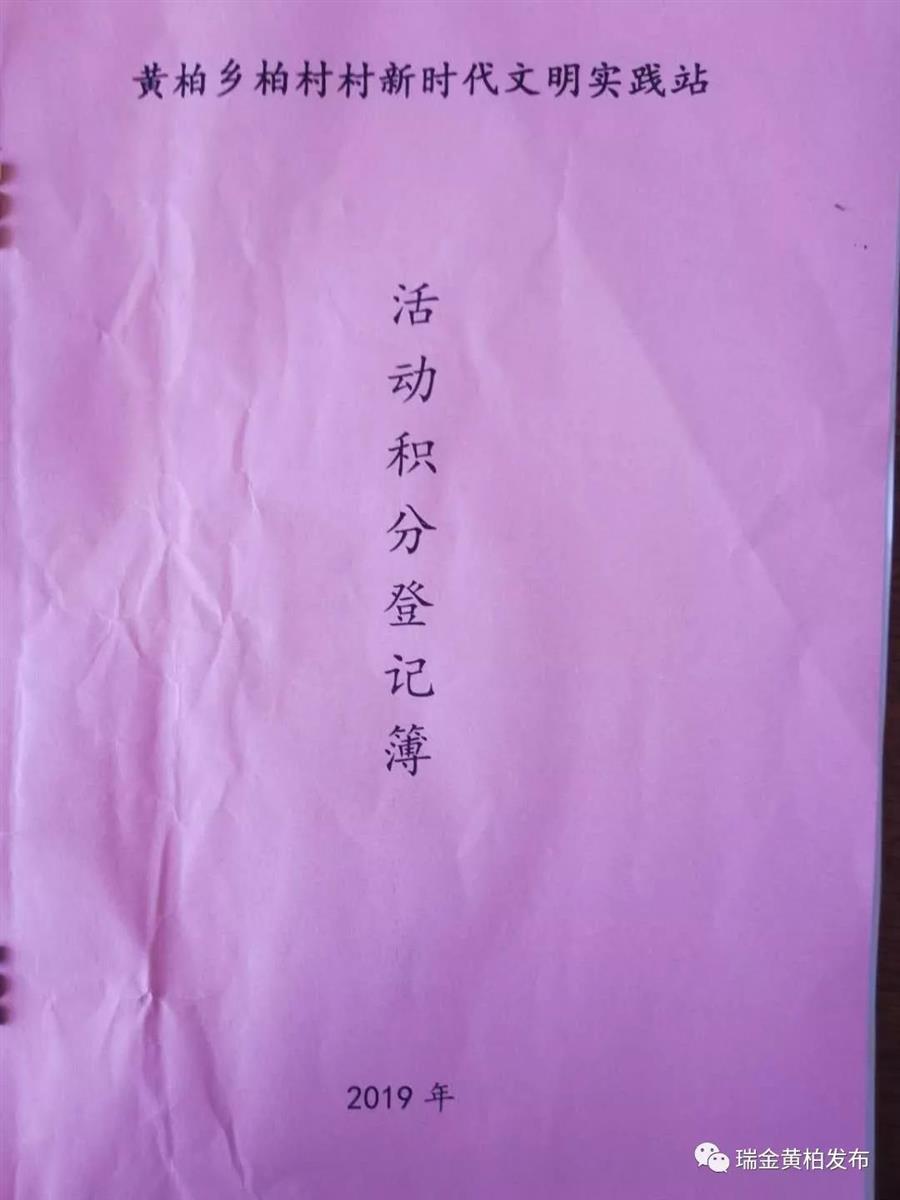 黄柏乡柏村村新时代文明实践站
活动积分登记簿
2019 年
瑞金黄柏发布